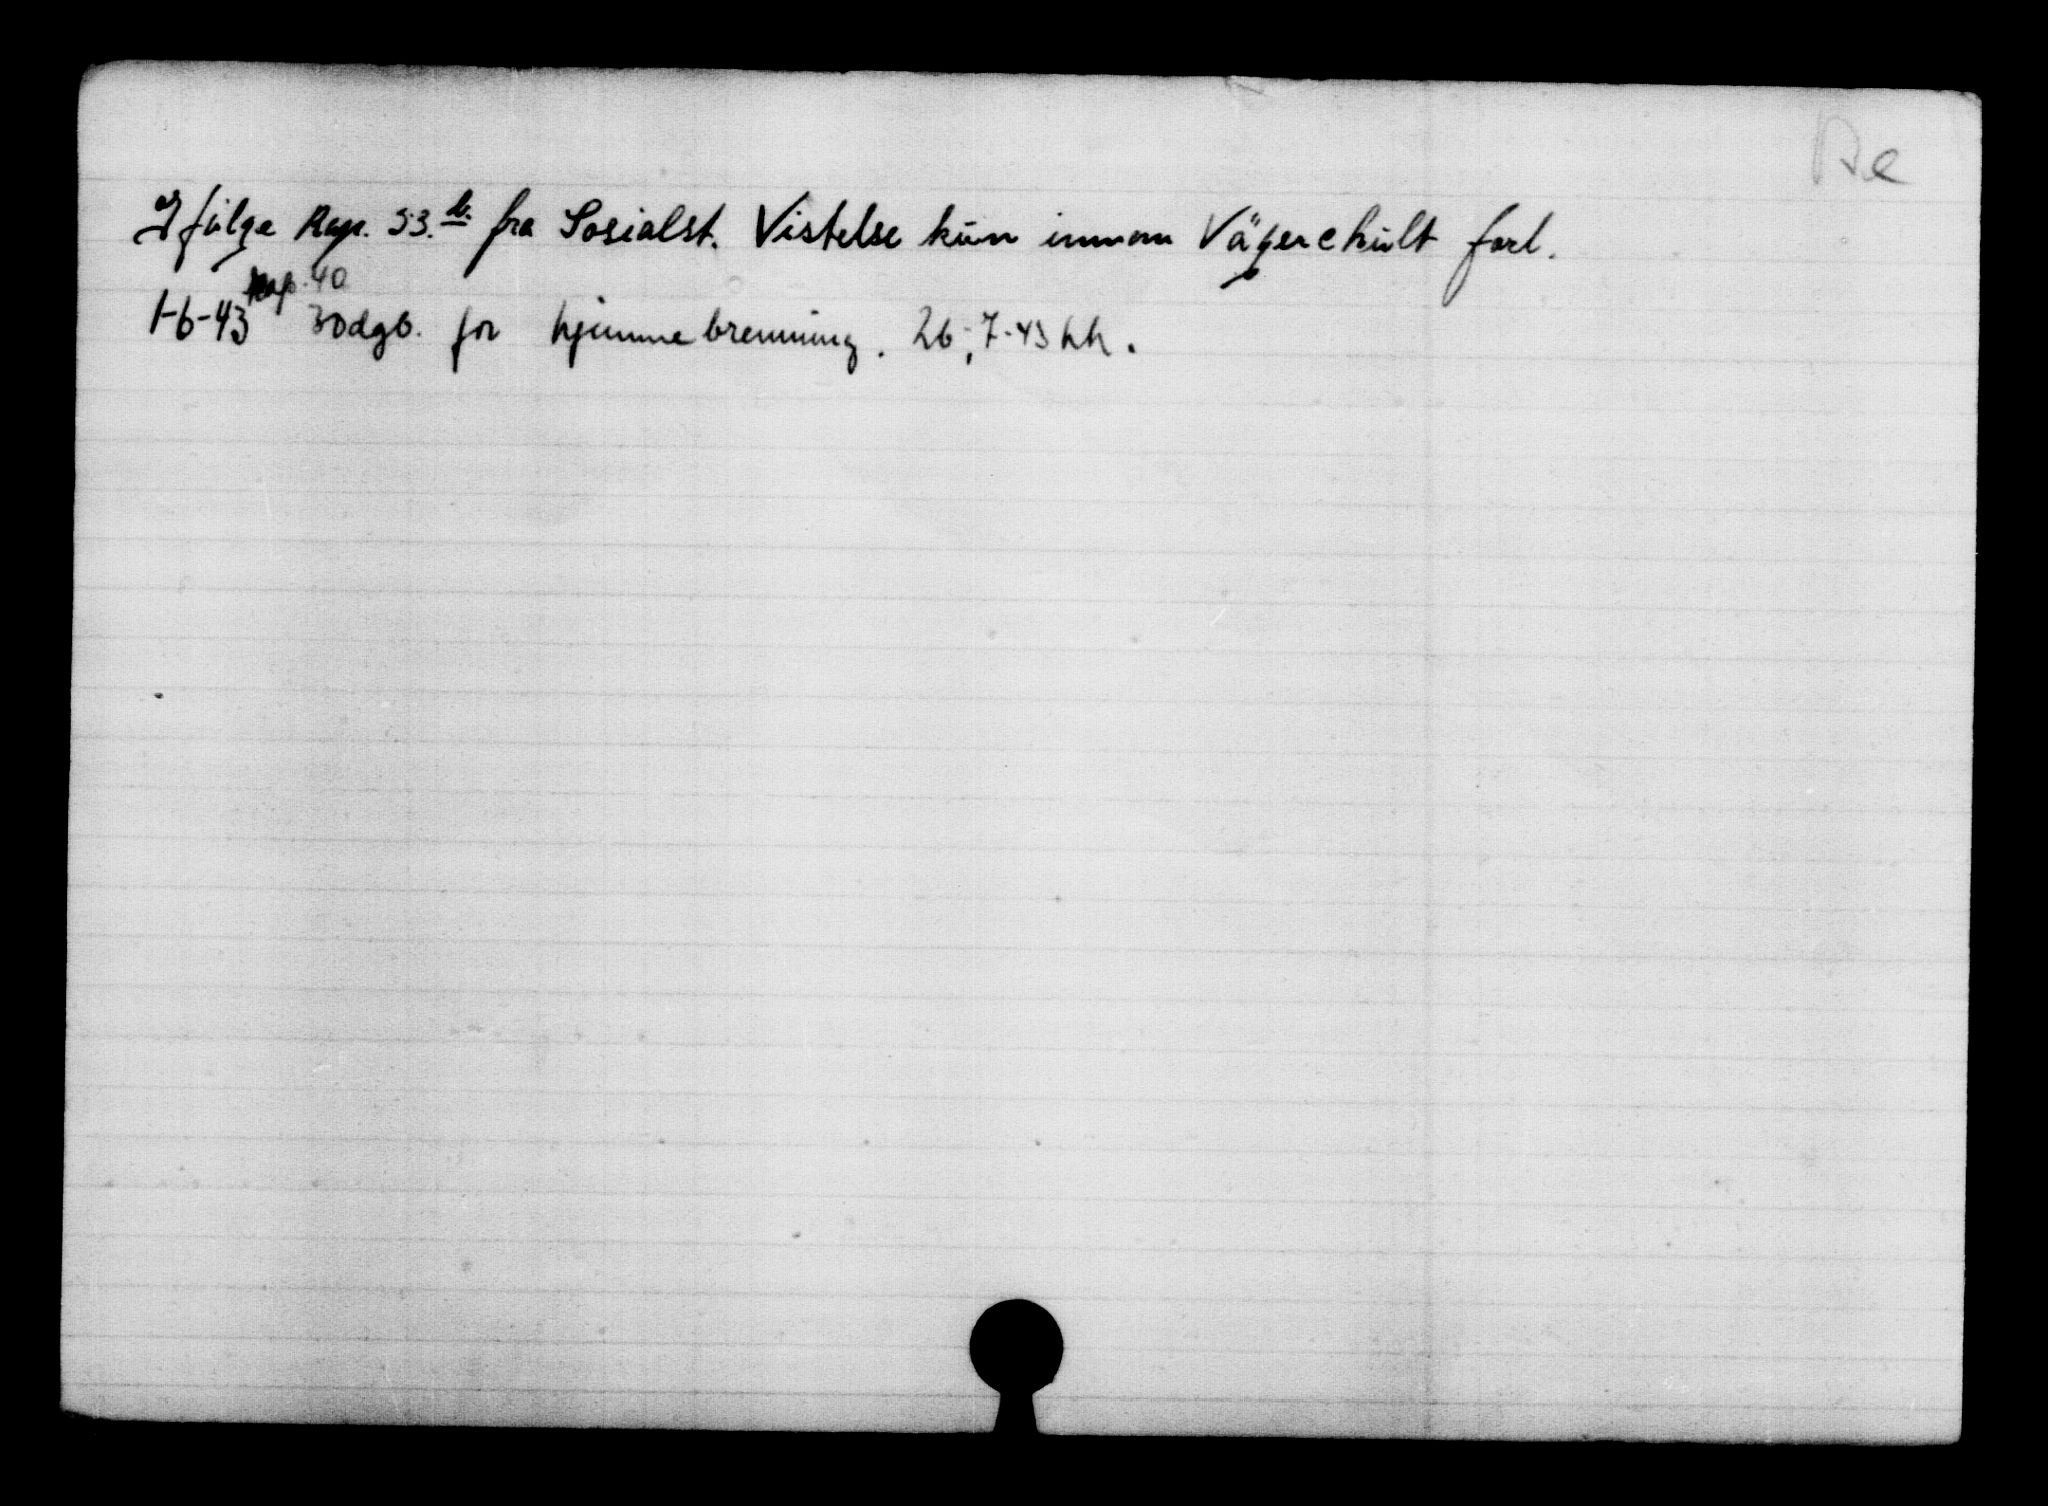 Ae
Ifülge Rap. 53.b. fra Sosialst. Vistelse kün innom Vägerehült forl.
Rap. 40
1-6-43 30dgb. for hjemmebrenning. 26.7-43 hh.